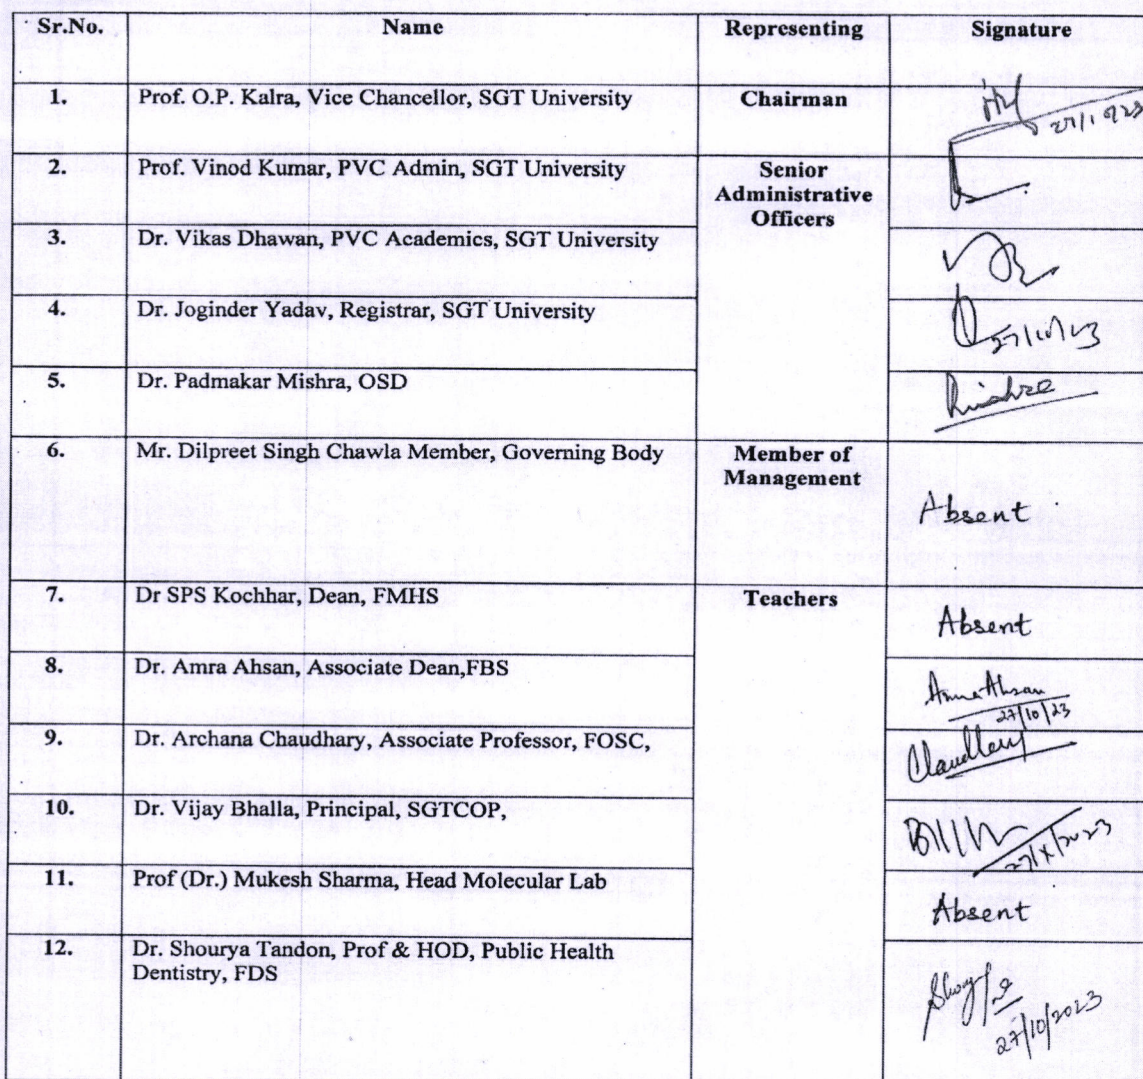 Sr.No. Name Representing Signature
1. Prof. O.P. Kalra, Vice Chancellor, SGT University Chairman
27/10/23
2. Prof. Vinod Kumar, PVC Admin, SGT University Senior
Administrative
Officers
3. Dr. Vikas Dhawan, PVC Academics, SGT University
4. Dr. Joginder Yadav, Registrar, SGT University
27/10/23
5. Dr. Padmakar Mishra, OSD
6. Mr. Dilpreet Singh Chawla Member, Governing Body Member of
Management
Absent
7. Dr SPS Kochhar, Dean, FMHS Teachers
Absent
8. Dr. Amra Ahsan, Associate Dean,FBS
Amra Ahsan
27/10/23
9. Dr. Archana Chaudhary, Associate Professor, FOSC,
Chaudhary
10. Dr. Vijay Bhalla, Principal, SGTCOP,
27/X/2023
11. Prof (Dr.) Mukesh Sharma, Head Molecular Lab
Absent
12. Dr. Shourya Tandon, Prof & HOD, Public Health
Dentistry, FDS
27/10/2023